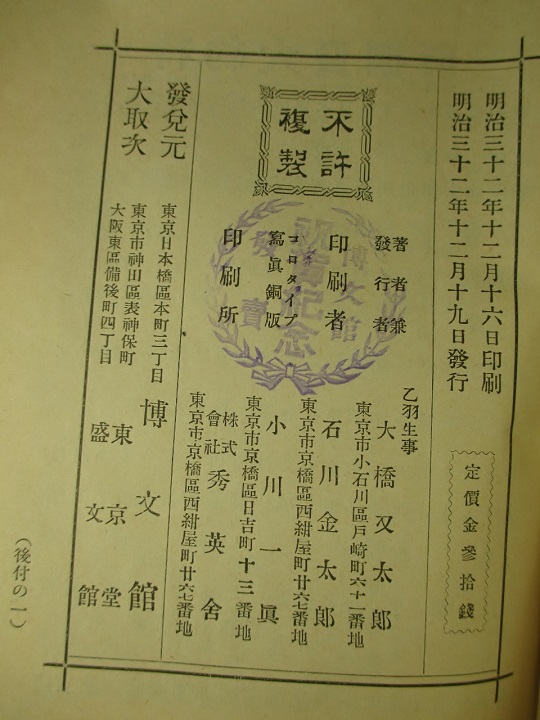 明治三十二年十二月十六日印刷
明治三十二年十二月十九日發行
定價金參拾錢
不許
複製
著者兼
發行者
乙羽生事
大橋又太郎
東京市小石川區戸崎町六十一番地
印刷者
石川金太郎
東京市京橋區西紺屋町廿六七番地
コロタイプ
寫眞銅版
小川一眞
東京市京橋區日吉町十三番地
印刷所
株式
會社
秀英舍
東京市京橋區西紺屋町廿六七番地
發兌元
東京日本橋區本町三丁目
博文館
大取次
東京市神田區表神保町
東京堂
大阪東區備後町四丁目
盛文館
(後付の一)
博文館
發賣
紀念